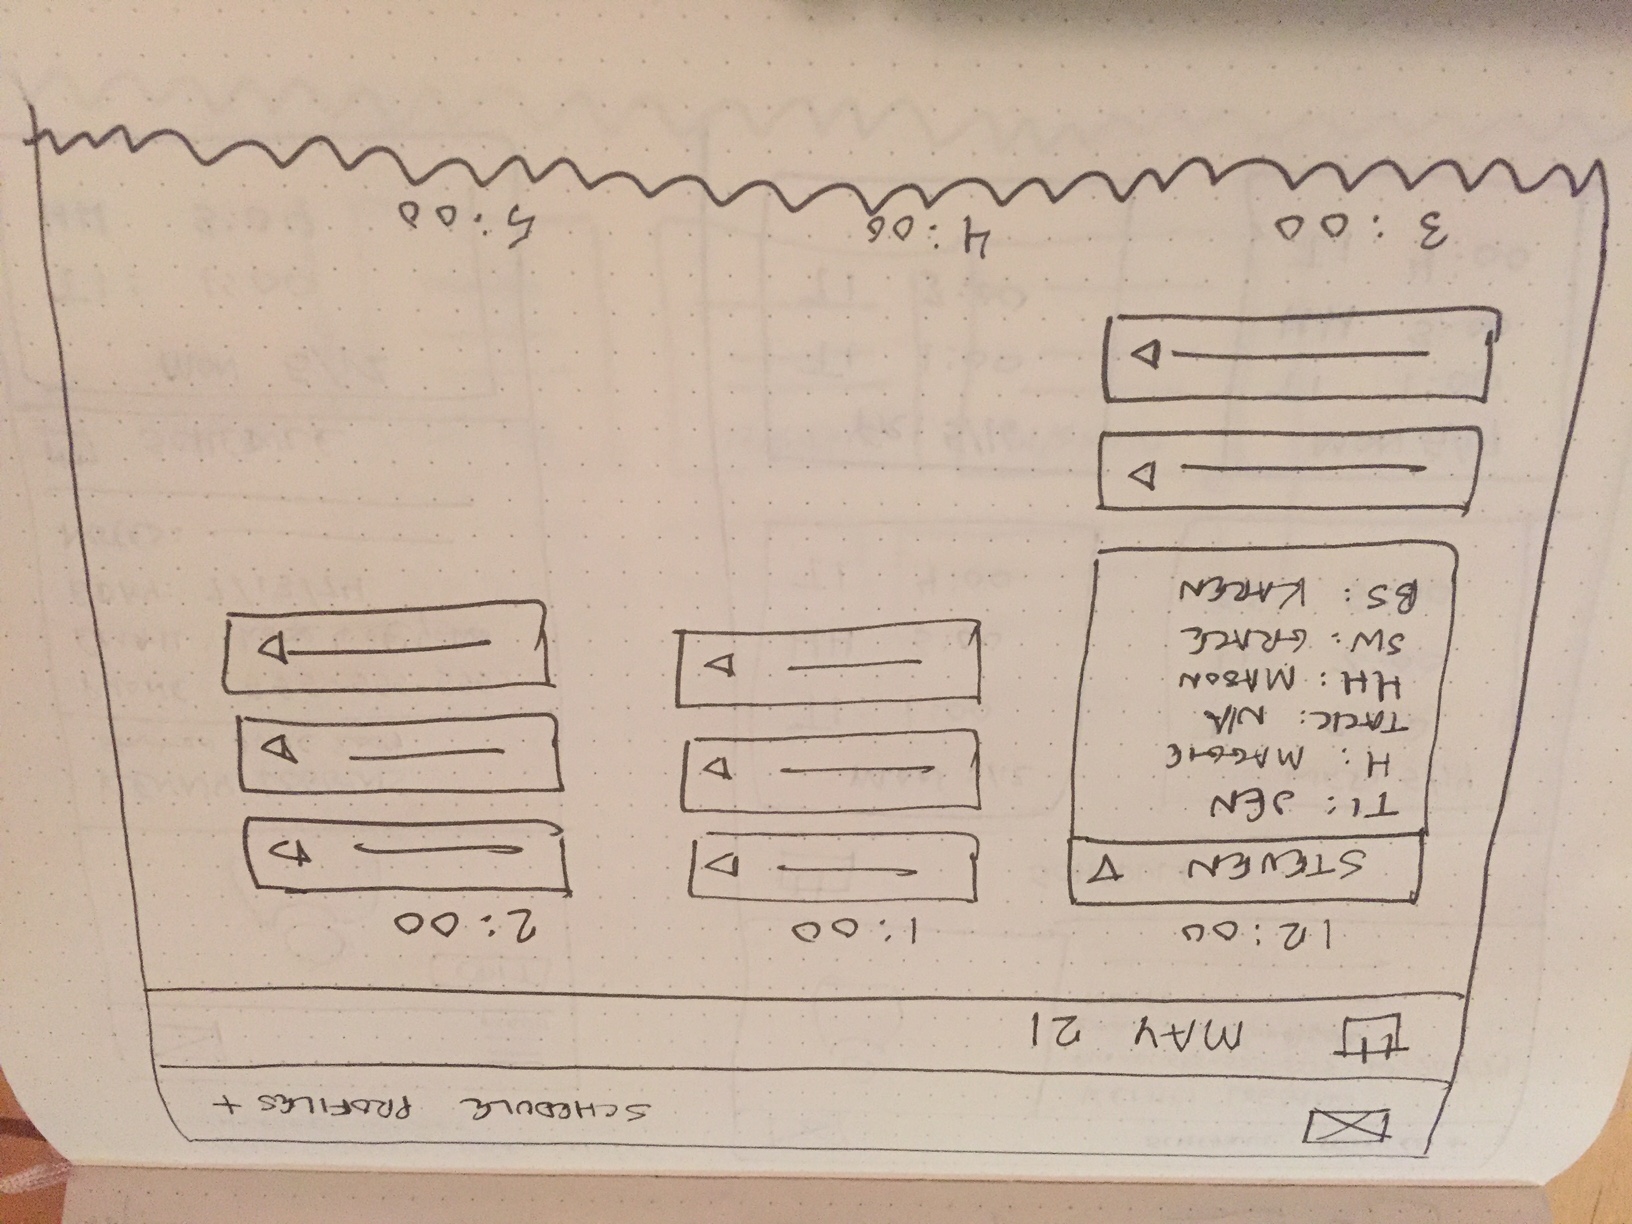 SCHEDULE PROFILES +
MAY 21
12:00 1:00 2:00
STEVEN
TI: JEN
H: MAGGIE
TACK: N/A
HH: MASON
SW: GRACE
BS: KAREN
3:00 4:00 5:00